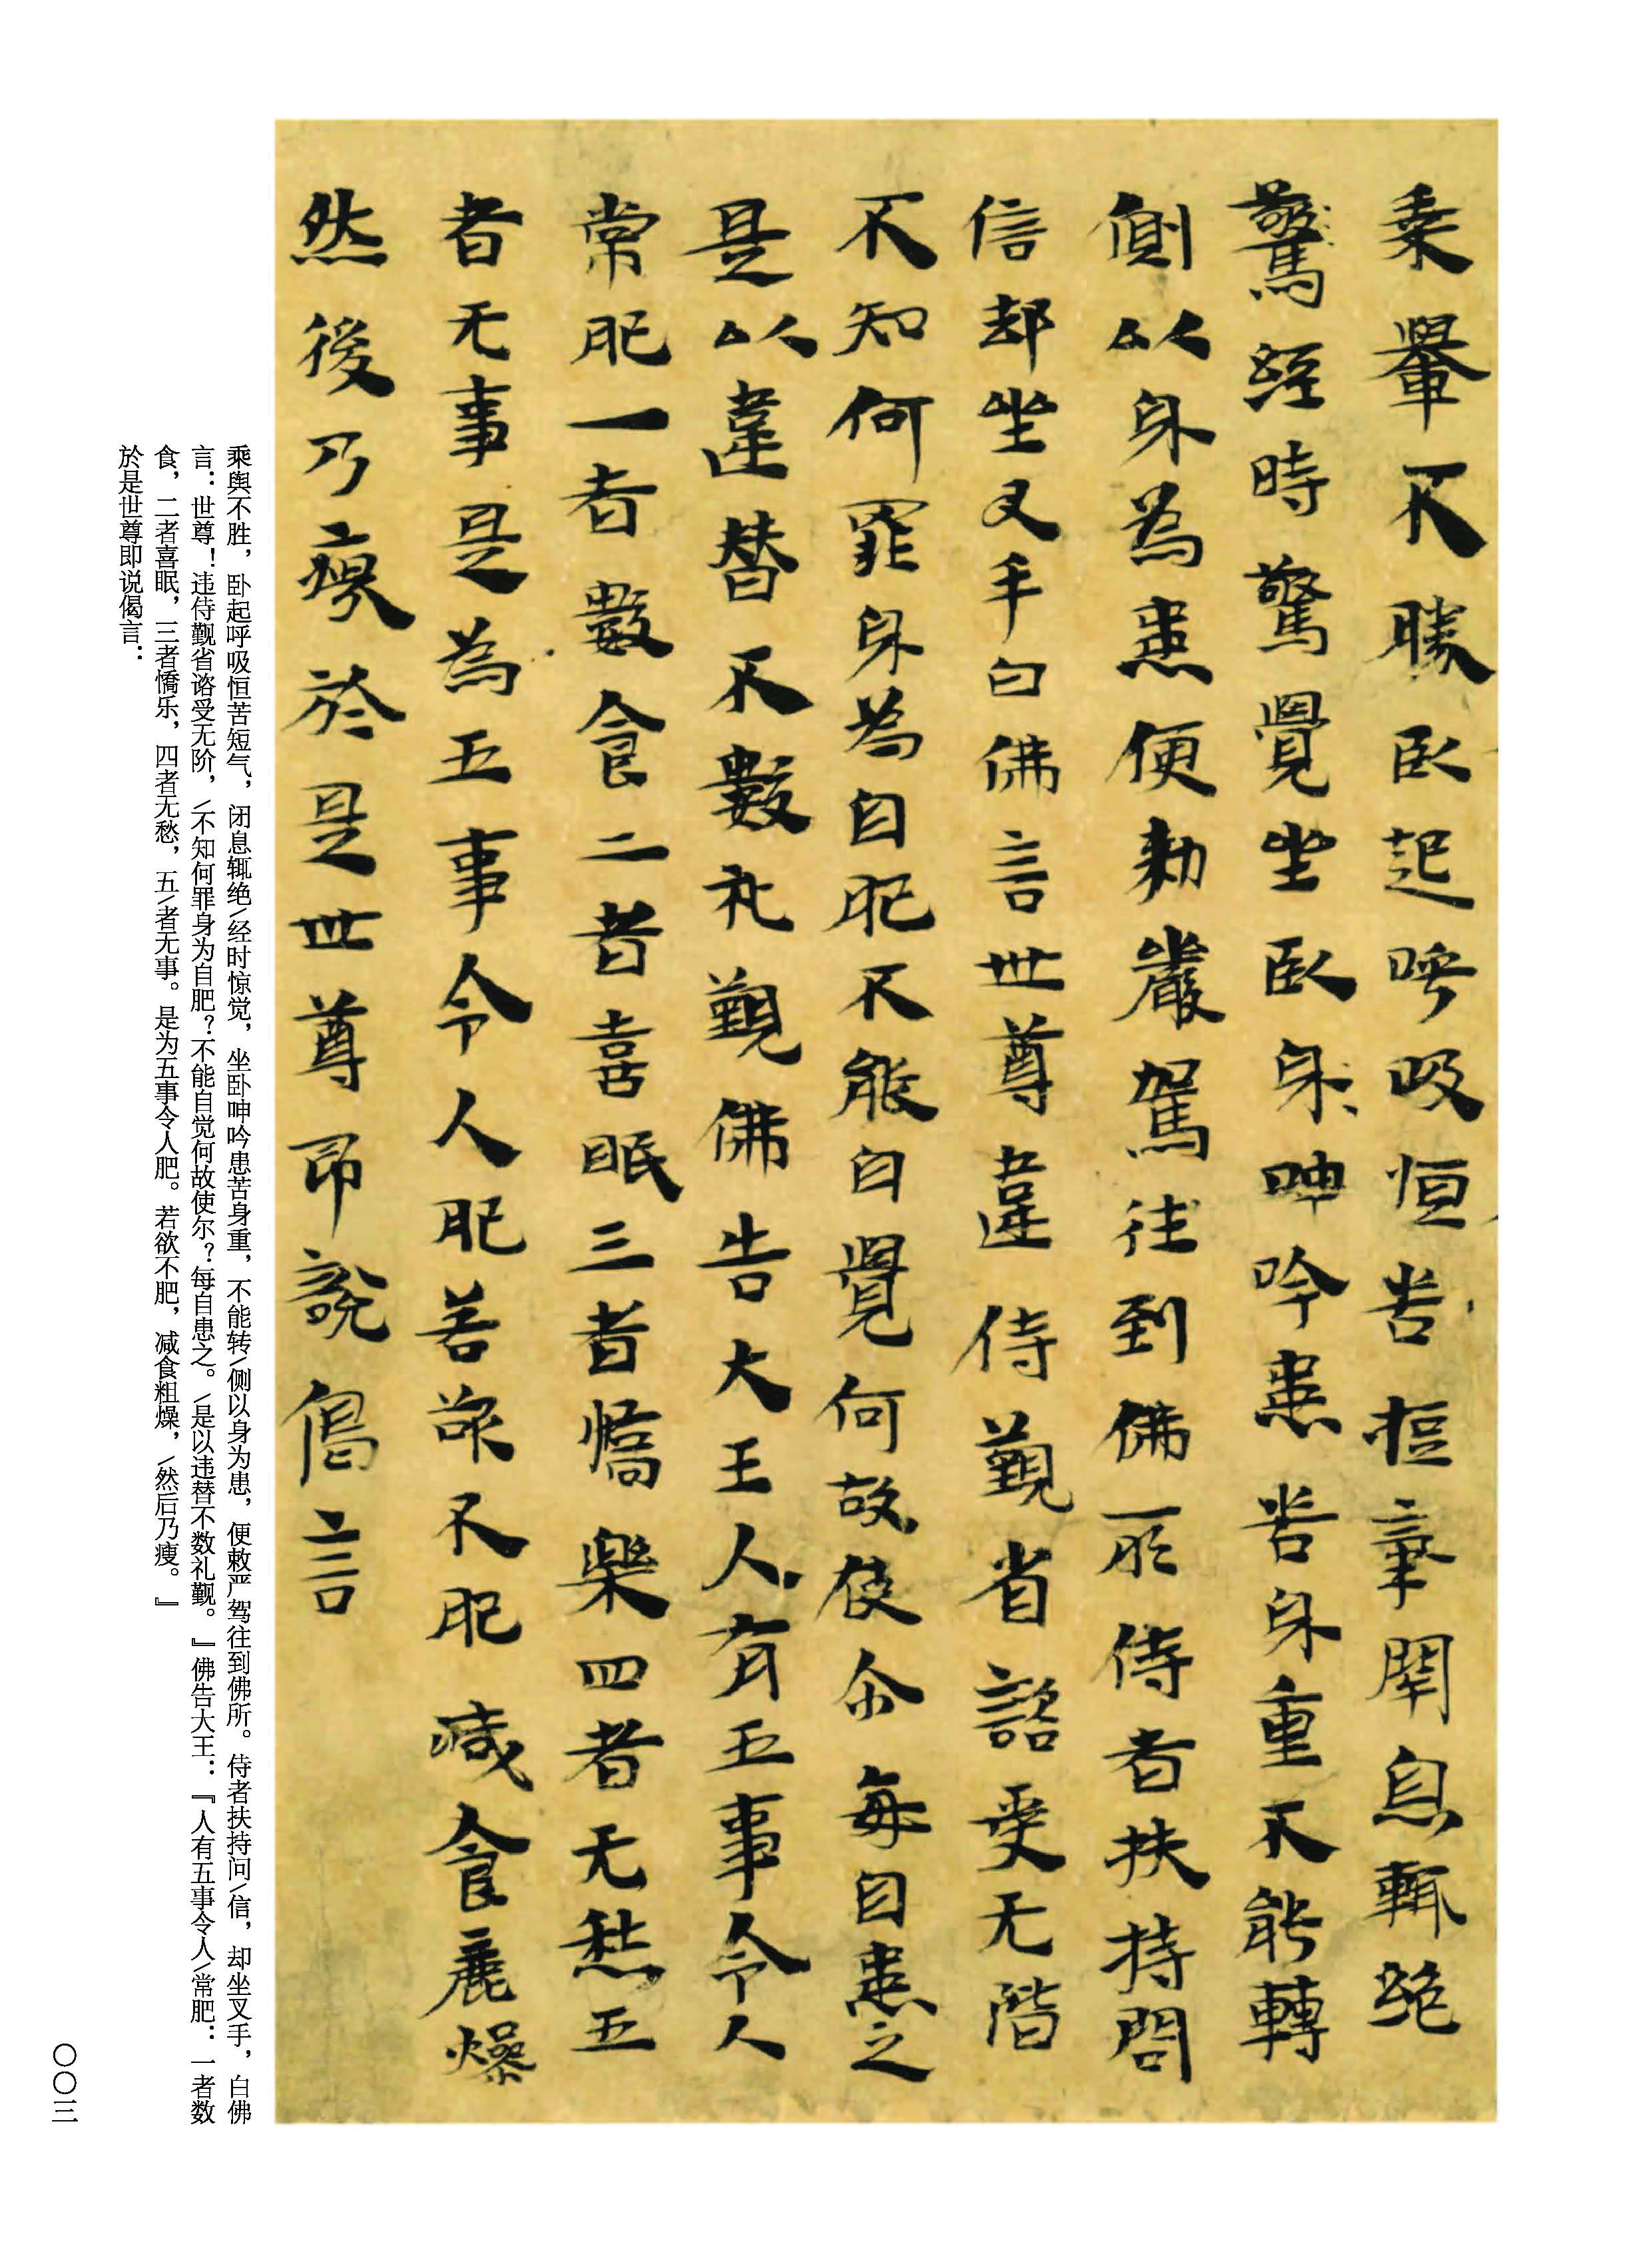 乗轝不勝臥起呼吸恒苦短氣閇息輒絕
驚經時驚覺坐臥身呻吟患苦身重不能轉
側以身為患便勑嚴駕往到佛所侍者扶持問
信却坐叉手白佛言世尊違侍覲省諮受无階
不知何罪身為自肥不能自覺何故使尒每自患之
是以違替不數礼覲佛告大王人有五事令人
常肥一者數食二者喜眠三者憍樂四者无愁五
者无事是為五事令人肥若欲不肥減食麁燥
然後乃瘦於是世尊即說偈言
乘舆不胜，卧起呼吸恒苦短气，闭息辄绝/经时惊觉，坐卧呻吟患苦身重，不能转/侧以身为患，便敕严驾往到佛所。侍者扶持问/信，却坐叉手，白佛
言：世尊！违侍觐省谘受无阶，/不知何罪身为自肥？不能自觉何故使尔？每自患之。/是以违替不数礼觐。』佛告大王：『人有五事令人/常肥：一者数
食，二者喜眠，三者憍乐，四者无愁，五/者无事。是为五事令人肥。若欲不肥，减食粗燥，/然后乃瘦。』
於是世尊即说偈言：
〇〇三